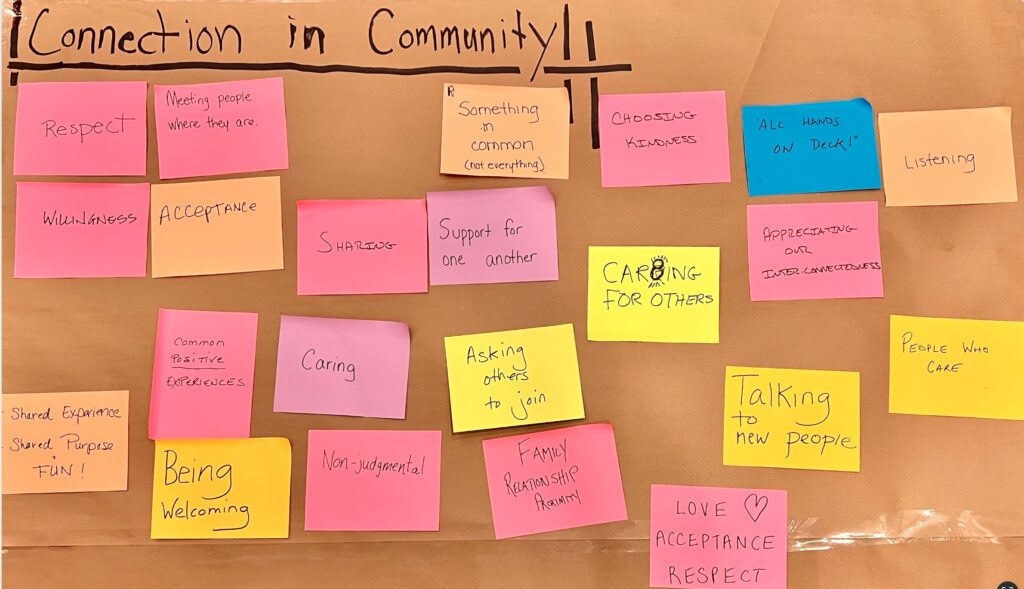 Connection in Community
Respect
Meeting people
where they are.
R
Something
in
common
(not everything)
CHOOSING
KINDNESS
"ALL HANDS
ON Deck!"
Listening
WILLINGNESS
ACCEPTANCE
SHARING
Support for
one another
CARING
FOR OTHERS
APPRECIATING
OUR
INTER-CONNECTEDNESS
Common
POSITIVE
EXPERIENCES
Caring
Asking
others
to join
Talking
to
new people
PEOPLE WHO
CARE
- Shared Experience
- Shared Purpose
+
FUN!
Being
Welcoming
Non-judgmental
FAMILY
RELATIONSHIP
PROXIMITY
LOVE ♡
ACCEPTANCE
RESPECT